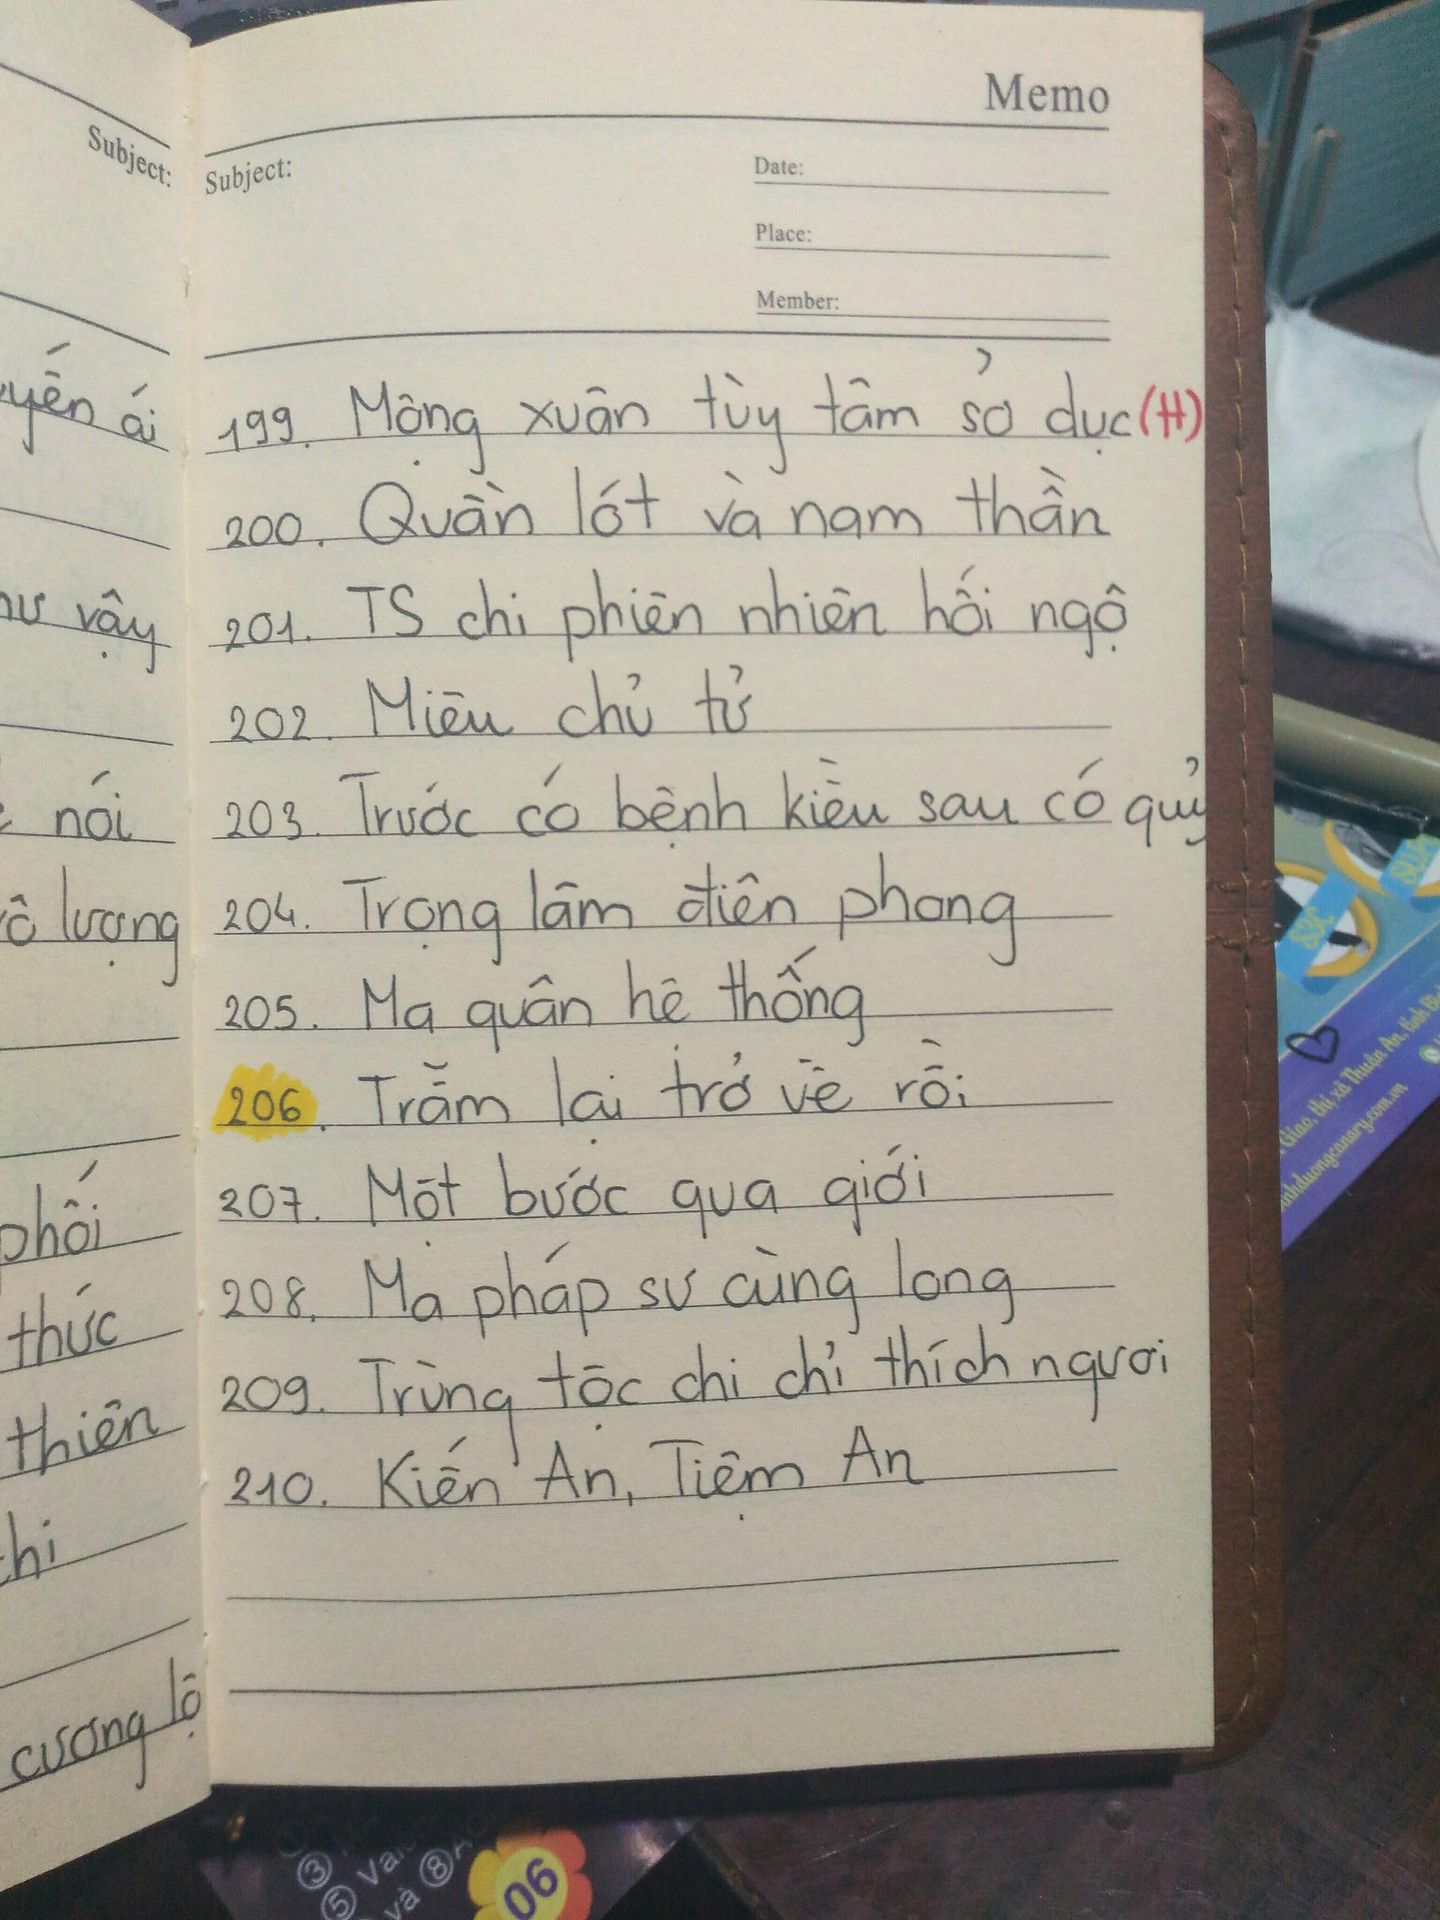 Memo
Subject:
Subject:
Date:
Place:
Member:
ái
199. Mộng xuân tùy tâm sở dục (H)
200. Quần lót và nam thần
vậy
201. TS chi phiên nhiên hồi ngộ
202. Miêu chủ tử
nói
203. Trước có bệnh kiều sau có quỷ
lượng
204. Trọng lâm điên phong
205. Ma quân hệ thống
206. Trẫm lại trở về rồi
207. Một bước qua giới
phối
208. Ma pháp sư cùng long
thức
209. Trùng tộc chi chỉ thích ngươi
thiên
210. Kiến An, Tiệm An
cương lộ
06